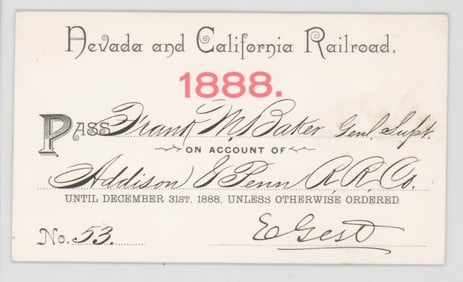 Nevada and California Railroad.
1888.
Pass Frank M. Baker Genl. Supt.
ON ACCOUNT OF
Addison & Penn R.R. Co.
UNTIL DECEMBER 31ST, 1888. UNLESS OTHERWISE ORDERED.
No. 53. E Gest